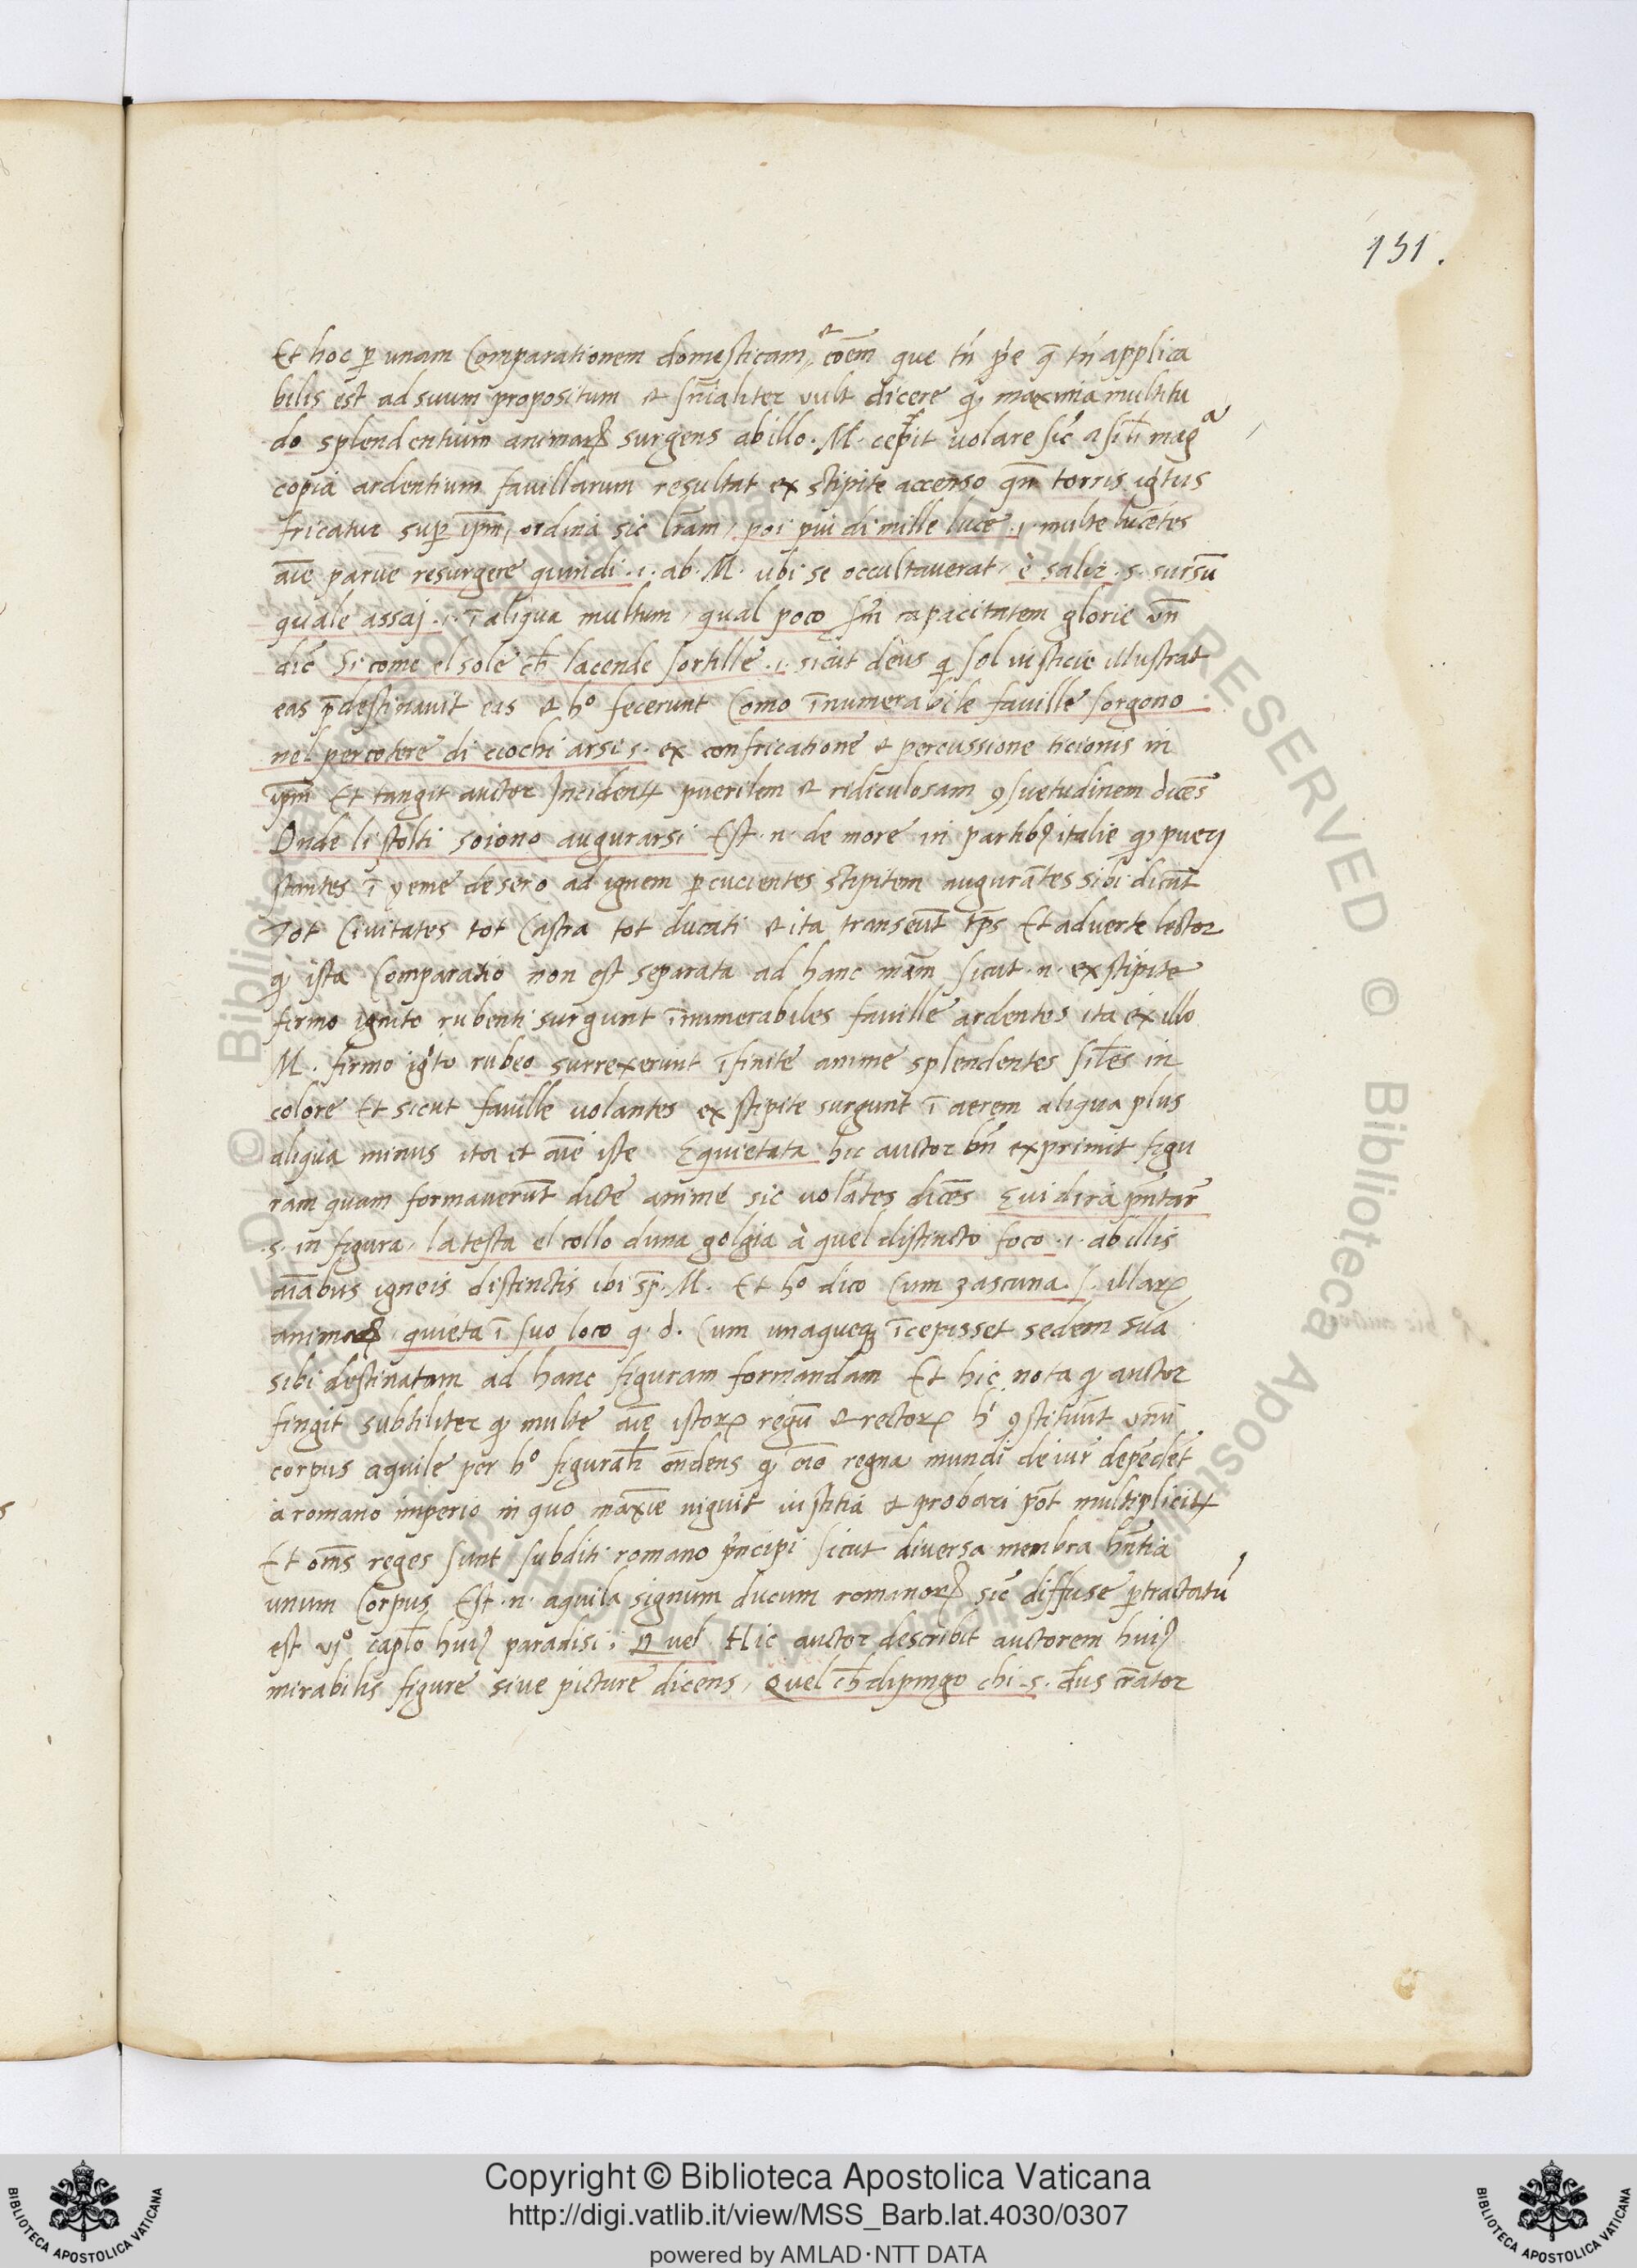 151.
Et hoc ꝑ unam Comparationem domesticam, et cōem que tń
bilis est ad suum propositum et sn̄ialiter vult dicere ꝙ maxima multitu
do splendentium animaꝝ surgens ab illo. M. volare sic̄ magᵃ
copia ardentium favillarum resultat ex stipite accenso qn̄ torris igⁱtus
fricatur suꝑ ip̄m, ordina sic lr̄am, poi piu di mille luce .i. multe lucētes
aīe parve resurgere quindi .i. ab. M. ubi se occultaverat, e salir .s. sursū
quale assaj .i. ī aliqua multum, qual poco sm̄ capacitatem glorie vn̄
dic̄ Si come el sole ch̄ lacende sortille .i. sicut deus qͥ sol iusticie illustrat
eas p̄destinavit eas et hº fecerunt Como īnumerabile faville sorgono
nel percotere di ciochi arsi s. ex confricatione et percussione ticionis in
ip̄m Et tangit auctor Incident̄ puerilem et ridiculosam ꝯsuetudinem dicēs
Onde li stolti soiono augurarsi Est .n. de more in partibꝫ italie ꝙ pueri
stantes ī yeme de sero ad ignem ꝑcucientes stipitem augurātes sibi dicūt
Tot Civitates tot Castra tot ducati et ita transeūt tp̄s Et adverte lector
ꝙ ista Comparatio non est separata ad hanc mām sicut .n. ex stipite
firmo ignito rubenti surgunt īnumerabiles faville ardentes ita ex illo
M. firmo igⁱto rubeo surrexerunt īfinite anime splendentes sil̄es in
colore Et sicut faville volantes ex stipite surgunt ī aerem aliqua plus
aliqua minus ita et aīe iste Equietata hic auctor bn̄ exprimit figu
ram quam formaverūt dicte anime sic volātes dicēs Evidi rapn̄tar̄
.s. in figura, la testa el collo duna golgia à quel distincto foco .i. ab illis
aīabus igneis distinctis ibi sp̄. M. Et hº dico Cum zascuna .s. illaꝝ
animaꝝ quieta ī suo loco q. d. Cum unaqueqꝫ īcepisset sedem sua
sibi destinatam ad hanc figuram formandam Et hic nota ꝙ auctor
fingit subtiliter ꝙ multe aīe istoꝝ regū et rectoꝝ hⁱ ꝯstituūt unū
corpus aquile per hº figuraŀr on̄dens ꝙ oīa regna mundi de iur̄ depēdēt
a romano imperio in quo maxīe viguit iustitia et probari pōt multiplicit̄
Et om̄s reges sunt subditi romano pⁱncipi sicut diversa membra hn̄tia
unum Corpus Est .n. aquila signum ducum romanoꝝ sic̄ diffuse ꝑtractatū
est vjº cap̄lo huiꝰ paradisi; Quel Hic auctor describit auctorem huiꝰ
mirabilis figure sive picture dicens, Quel ch̄ dipingo chi .s. deus cr̄ator
Copyright © Biblioteca Apostolica Vaticana
http://digi.vatlib.it/view/MSS_Barb.lat.4030/0307
powered by AMLAD·NTT DATA